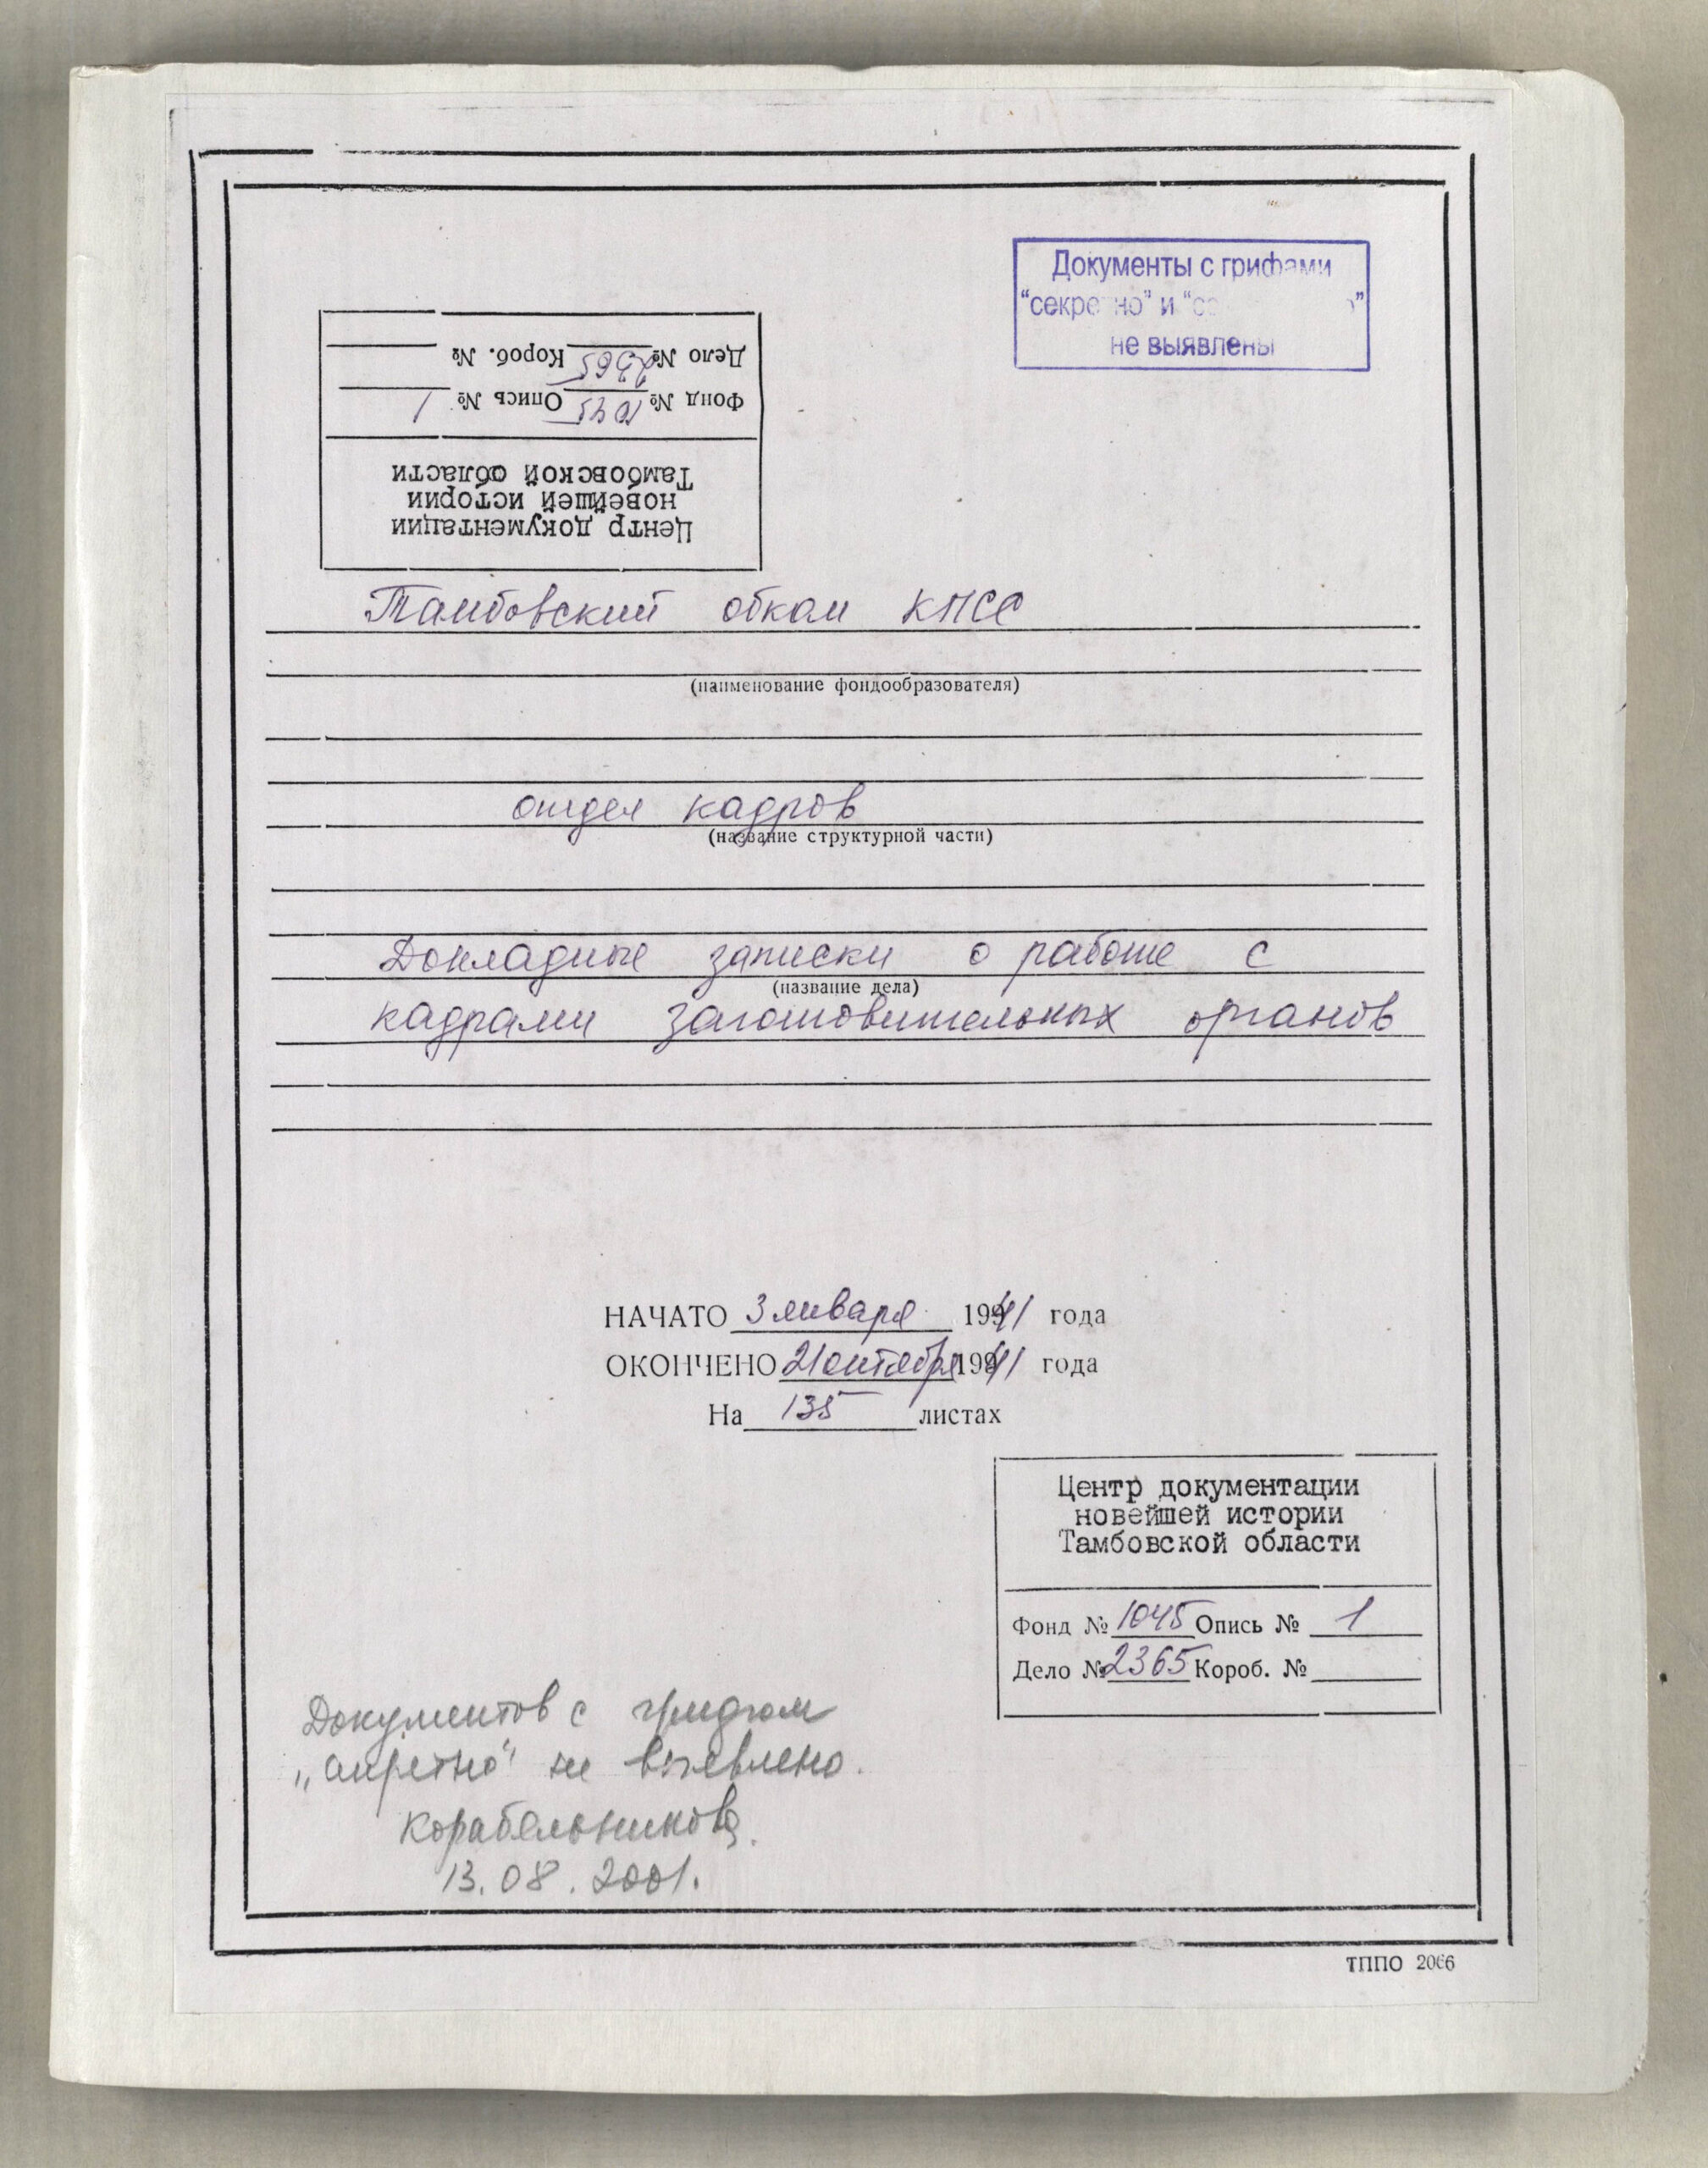 Документы с грифами
"секретно" и "с
не выявлены
Дело № 2365 Короб. №
Фонд № 1045 Опись № 1
Центр документации
новейшей истории
Тамбовской области
Тамбовский обком КПСС
(наименование фондообразователя)
отдел кадров
(название структурной части)
Докладные записки о работе с
(название дела)
кадрами заготовительных органов
НАЧАТО 3 января 1941 года
ОКОНЧЕНО 21 октября 1941 года
На 135 листах
Центр документации
новейшей истории
Тамбовской области
Фонд № 1045 Опись № 1
Дело № 2365 Короб. №
Документов с грифом
„секретно" не выявлено.
Корабельникова
13.08.2001.
ТППО 2066